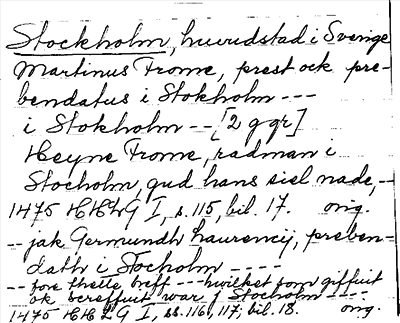 Stockholm, huvudstad i Sverige
Martinus Frome, prest ock pre-
bendatus i Stokholm ---
i Stokholm -- [2 ggr]
Heyne Frome, radman i
Stocholm, gud hans siel nade, --
1475 HH2G I, s. 115, bil. 17. orig.
-- jak Germundh Laurencij, preben-
dath i Stocholm ----
-- fore thetta breff ---- hwilket som giffuit
ok bescriffuit war j Stocholm ----
1475 HH2G I, ss. 116, 117, bil. 18. orig.